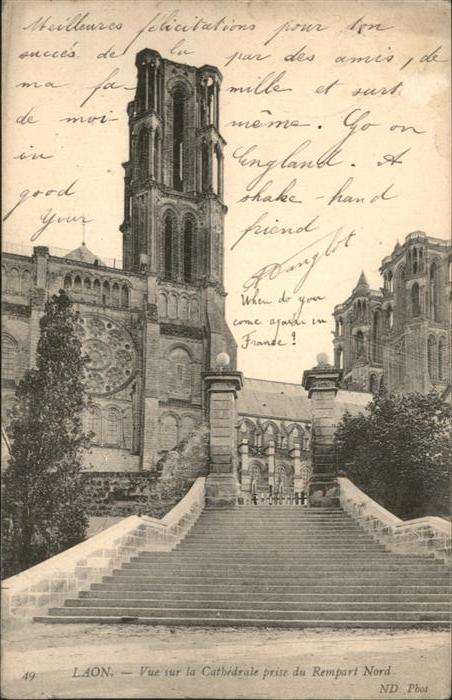 Meilleures félicitations pour ton
succés de la par des amis, de
ma fa mille et surt.
de moi- même. Go on
in England. A
good shake-hand
Your friend
When do you
come again in
France?
49 LAON. — Vue sur la Cathédrale prise du Rempart Nord
ND Phot